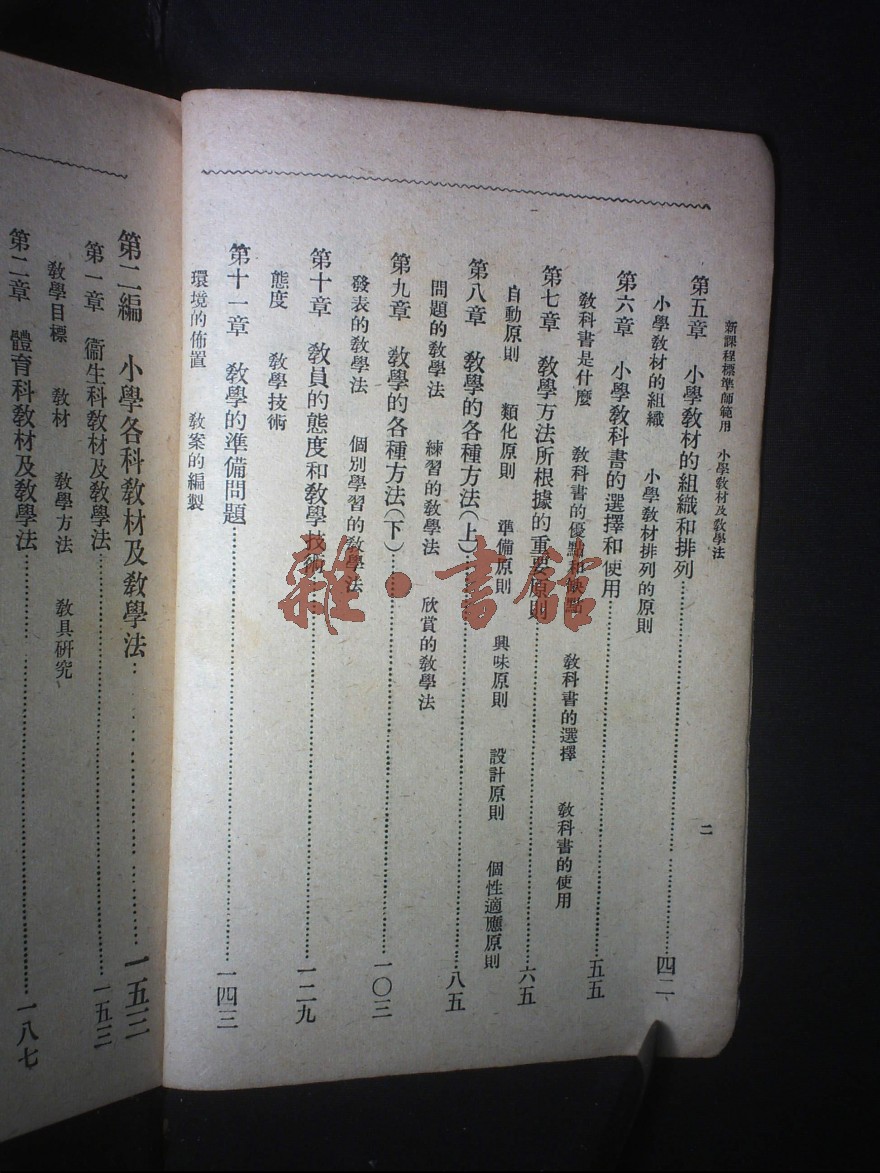 新課程標準師範用　小學教材及教學法
二
第五章　小學教材的組織和排列……四二
小學教材的組織　小學教材排列的原則
第六章　小學教科書的選擇和使用……五五
教科書是什麼　教科書的優點和缺點　教科書的選擇　教科書的使用
第七章　教學方法所根據的重要原則……六五
自動原則　類化原則　準備原則　興味原則　設計原則　個性適應原則
第八章　教學的各種方法(上)……八五
問題的教學法　練習的教學法　欣賞的教學法
第九章　教學的各種方法(下)……一〇三
發表的教學法　個別學習的教學法
第十章　教員的態度和教學技術……一二九
態度　教學技術
第十一章　教學的準備問題……一四三
環境的佈置　教案的編製
第二編　小學各科教材及教學法……一五三
第一章　衞生科教材及教學法……一五三
教學目標　教材　教學方法　教具研究
第二章　體育科教材及教學法……一八七
雜·書館